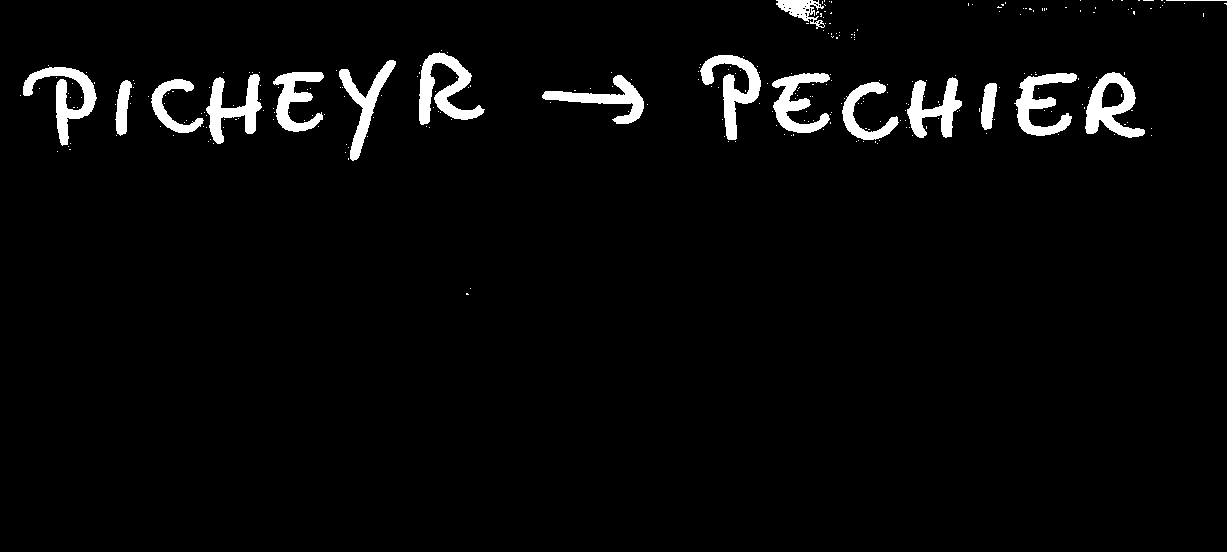 PICHEYR → PECHIER